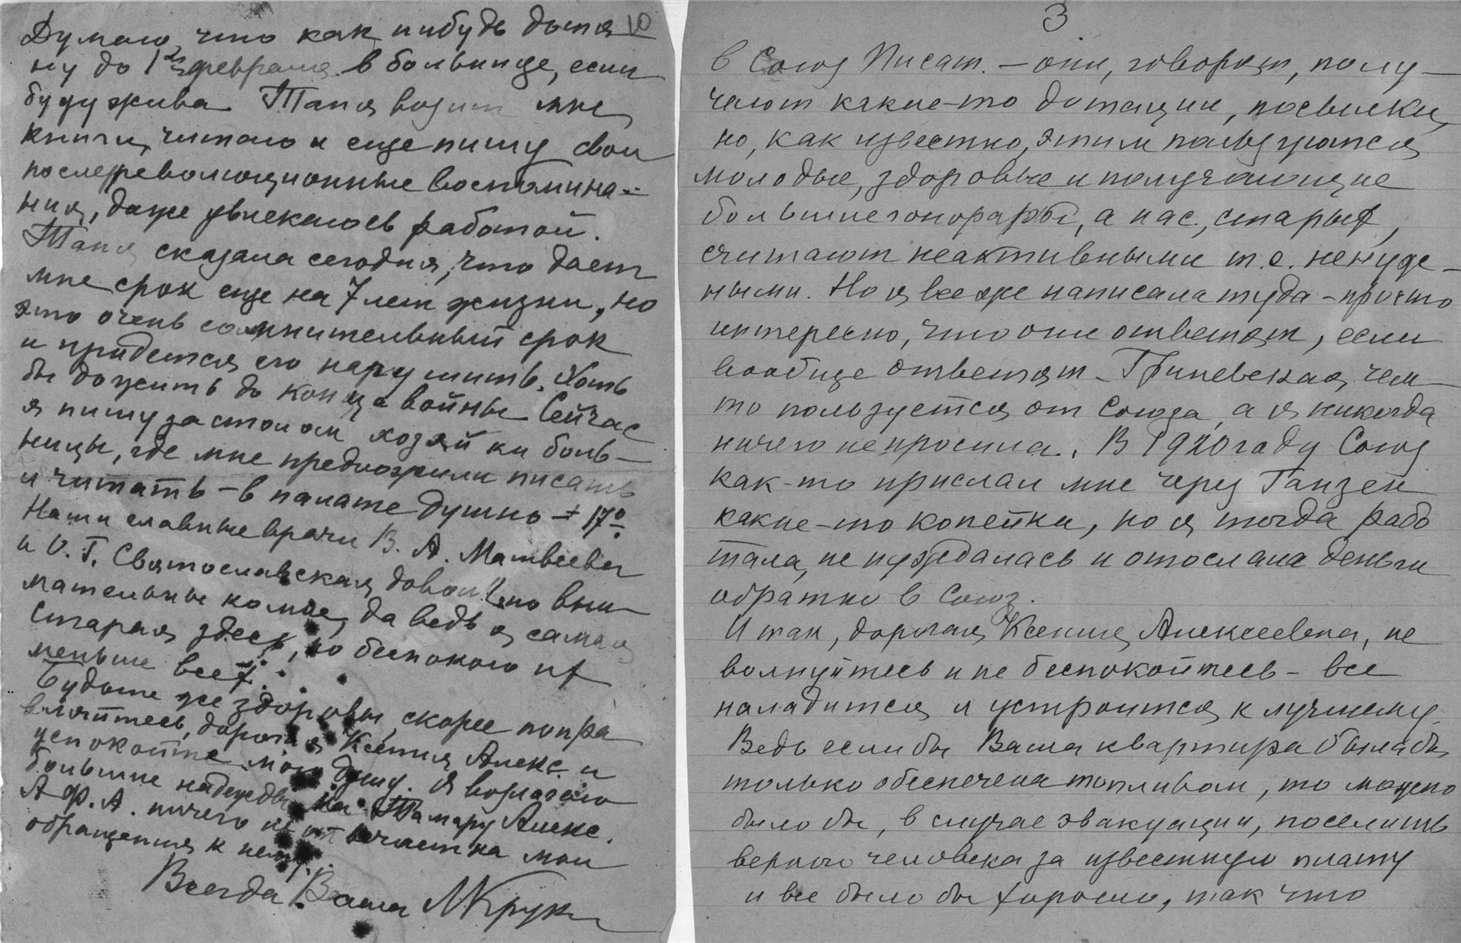 10
Думаю что как нибудь дотя
ну до 1го февраля в больнице, если
буду жива Таня возит мне
книги, читаю и еще пишу свои
послереволюционные воспомина-
ния, даже увлекаюсь работой.
Таня сказала сегодня, что дает
мне срок еще на 7 лет жизни, но
это очень сомнительный срок
и придется его нарушить. Хоть
бы дожить до конца войны Сейчас
я пишу за столом хозяйки боль-
ницы, где мне предложили писать
и читать – в палате душно + 17°
Наши главные врачи В. А. Матвеева
и О. Г. Святославская довольно вни
мательны ко мне, да ведь я самая
старая здесь, но беспокою их
меньше всех.
Будьте же здоровы, скорее попра
вляйтесь, дорогая Ксения Алекс. и
успокойте мою душу. Я возлагаю
большие надежды на Тамару Алекс.
А Ф. А. ничего не отвечает на мои
обращения к нему.
Всегда Ваша МКрук
3
в Союз Писат. – они, говорят, полу-
чают какие-то дотации, посылки,
но, как известно, этим пользуются
молодые, здоровые и получающие
большие гонорары, а нас, старых,
считают неактивными т.е. ненуж-
ными. Но я все же написала туда – просто
интересно, что они ответят, если
вообще ответят – Гриневская, чем-
то пользуется от Союза, а я никогда
ничего не просила. В 1920 году Союз
как-то прислал мне через Ганзен
какие-то копейки, но я тогда рабо
тала, не нуждалась и отослала деньги
обратно в Союз.
Итак, дорогая Ксения Алексеевна, не
волнуйтесь и не беспокойтесь – все
наладится и устроится к лучшему.
Ведь если бы Ваша квартира была бы
только обеспечена топливом, то можно
было бы, в случае эвакуации, поселить
верного человека за известную плату
и все было бы хорошо, так что